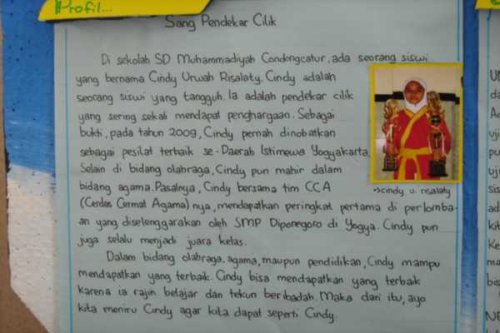 Profil...
Sang Pendekar Cilik
Di sekolah SD Muhammadiyah Condongcatur, ada seorang siswi
yang bernama Cindy Urwah Risalaty. Cindy adalah
seorang siswi yang tangguh. Ia adalah pendekar cilik
yang sering sekali mendapat penghargaan. Sebagai
bukti, pada tahun 2009, Cindy pernah dinobatkan
sebagai pesilat terbaik se-Daerah Istimewa Yogyakarta.
Selain di bidang olahraga, Cindy pun mahir dalam
bidang agama. Pasalnya, Cindy bersama tim CCA
(Cerdas Cermat Agama) nya, mendapatkan peringkat pertama di perlomba-
an yang diselenggarakan oleh SMP Diponegoro di Yogya. Cindy pun
juga selalu menjadi juara kelas.
Dalam bidang olahraga, agama, maupun pendidikan, Cindy mampu
mendapatkan yang terbaik. Cindy bisa mendapatkan yang terbaik
karena ia rajin belajar dan tekun beribadah. Maka dari itu, ayo
kita meniru Cindy agar kita dapat seperti Cindy.
cindy u. risalaty